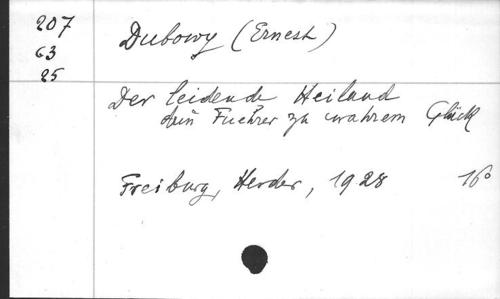 207
63
25
Dubowy (Ernest)
Der leidende Heiland
dein Fuehrer zu wahrem Glück
Freiburg, Herder, 1928 16°